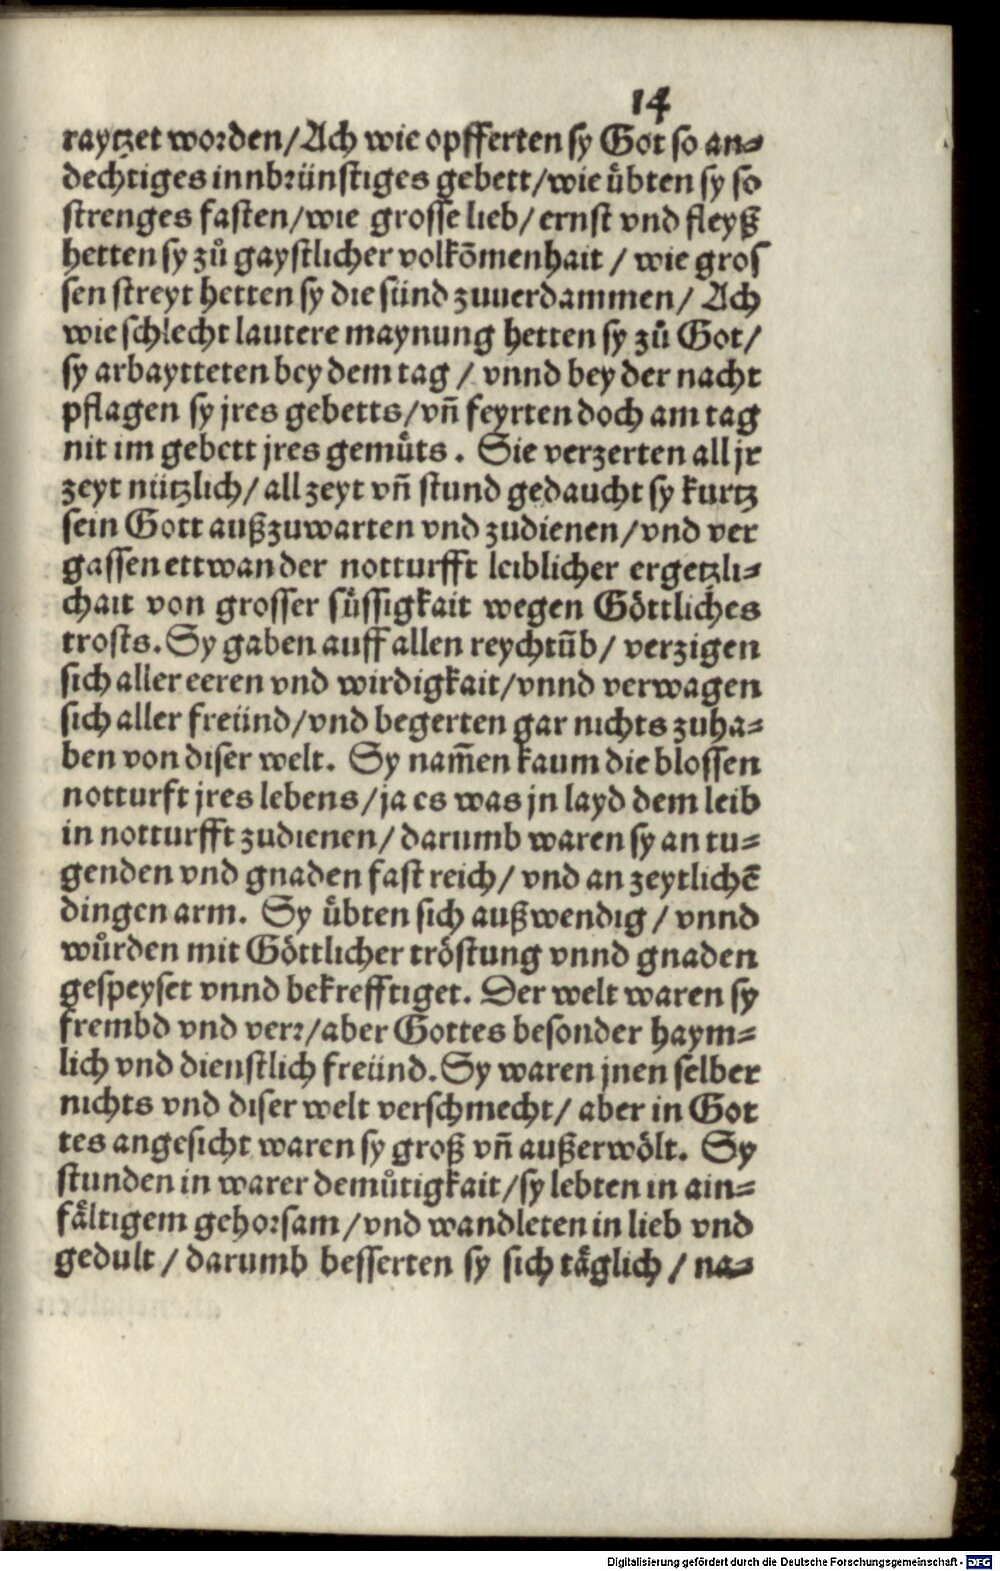 14
raytzet worden/Ach wie opfferten sy Got so an⸗
dechtiges innbrünstiges gebett/wie uͤbten sy so
strenges fasten/wie grosse lieb/ernst vnd fleyß
hetten sy zuͦ gaystlicher volkōmenhait / wie gros
sen streyt hetten sy die sünd zuuerdammen/ Ach
wie schlecht lautere maynung hetten sy zuͦ Got/
sy arbaytteten bey dem tag / vnnd bey der nacht
pflagen sy jres gebetts/vn̄ feyrten doch am tag
nit im gebett jres gemuͤts. Sie verzerten all jr
zeyt nützlich/all zeyt vn̄ stund gedaucht sy kurtz
sein Gott außzuwarten vnd zudienen/vnd ver
gassen ettwan der notturfft leiblicher ergetzli⸗
chait von grosser suͤssigkait wegen Goͤttliches
trosts. Sy gaben auff allen reychtūb/ verzigen
sich aller eeren vnd wirdigkait/vnnd verwagen
sich aller freünd/vnd begerten gar nichts zuha⸗
ben von diser welt. Sy nam̄en kaum die blossen
notturft jres lebens/ja es was jn layd dem leib
in notturfft zudienen/darumb waren sy an tu⸗
genden vnd gnaden fast reich/ vnd an zeytlichē
dingen arm. Sy uͤbten sich außwendig / vnnd
wuͦrden mit Goͤttlicher troͤstung vnnd gnaden
gespeyset vnnd bekrefftiget. Der welt waren sy
frembd vnd verꝛ/aber Gottes besonder haym⸗
lich vnd dienstlich freünd. Sy waren jnen selber
nichts vnd diser welt verschmecht/ aber in Got
tes angesicht waren sy groß vn̄ außerwoͤlt. Sy
stunden in warer demuͤtigkait/sy lebten in ain⸗
faͤltigem gehorsam/vnd wandleten in lieb vnd
gedult / darumb besserten sy sich taͤglich / na⸗
Digitalisierung gefördert durch die Deutsche Forschungsgemeinschaft - DFG